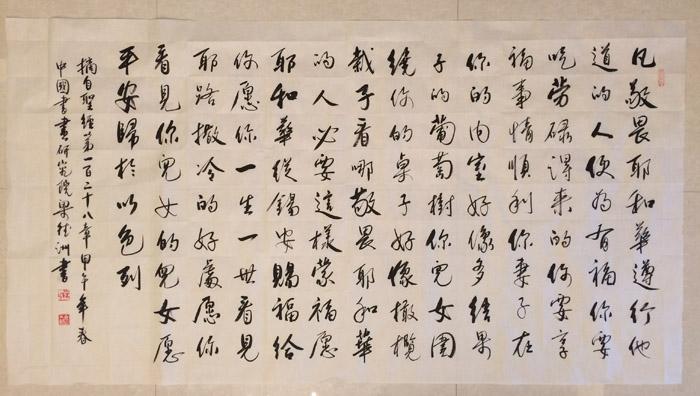 凡敬畏耶和華遵行他
道的人便为有福你要
吃劳碌淂来的你要享
福事情順利你妻子在
你的内室好像多结果
子的葡萄樹你兒女围
繞你的桌子好像撒欖
栽子看哪敬畏耶和華
的人必要這樣蒙福愿
耶和華從錫安賜福給
你愿你一生一世看見
耶路撒冷的好處愿你
看見你兒女的兒女愿
平安歸於以色列
摘自聖經第一百二十八章甲午年春
中國書畫研究院梁德洲書